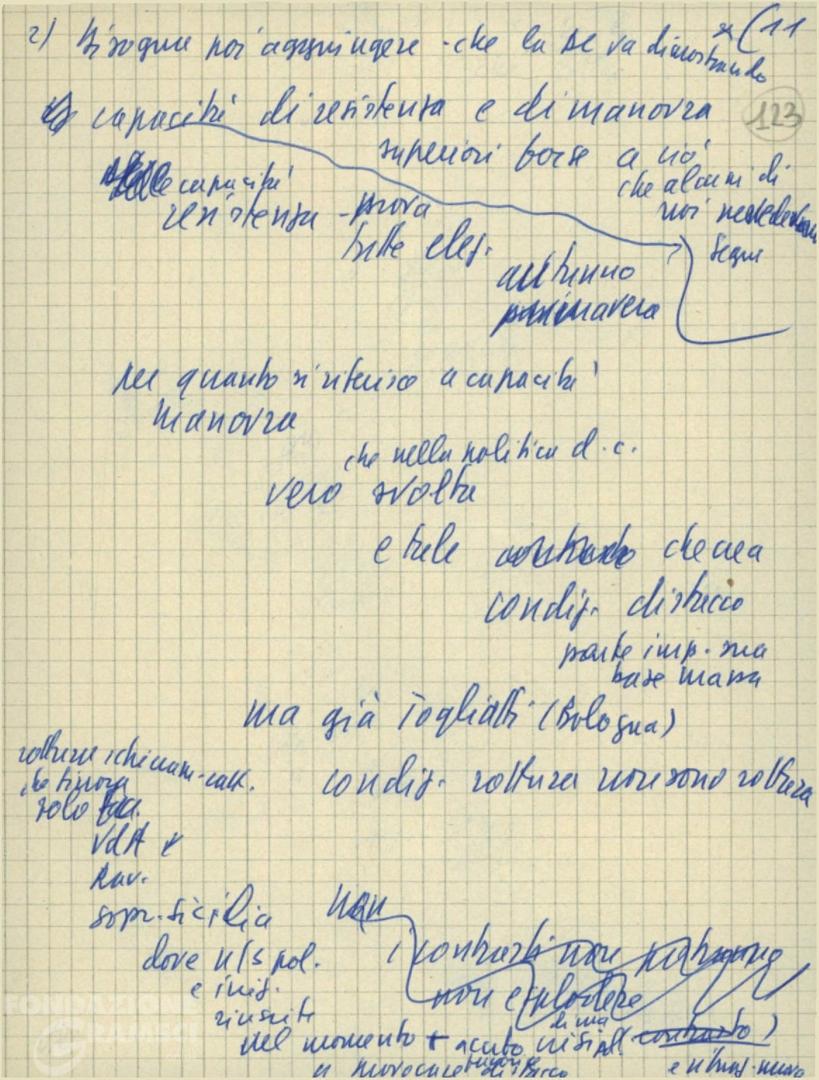 2) Bisogna poi aggiungere che la DC va dimostrando
(11
123
capacità di resistenza e di manovra
superiori forse a ciò
che alcuni di
noi
segue
capacità
resistenza - prova
tutte elez.
autunno
primavera
per quanto si riferisce a capacità
manovra
che nella politica d.c.
vero svolta
e tale che crea
condiz. distacco
parte imp. sua
base massa
ma già Togliatti (Bologna)
condiz. rottura non sono rottura
rotture schieram. catt.
che finora
solo
VdA
Rav.
sopr. Sicilia
dove n/s pol.
e iniz.
riuscite
non
i contrasti non possono
non esplodere
nel momento + acuto crisi contrasto)
a provocare distacco
FONDAZIONE
Gramsci